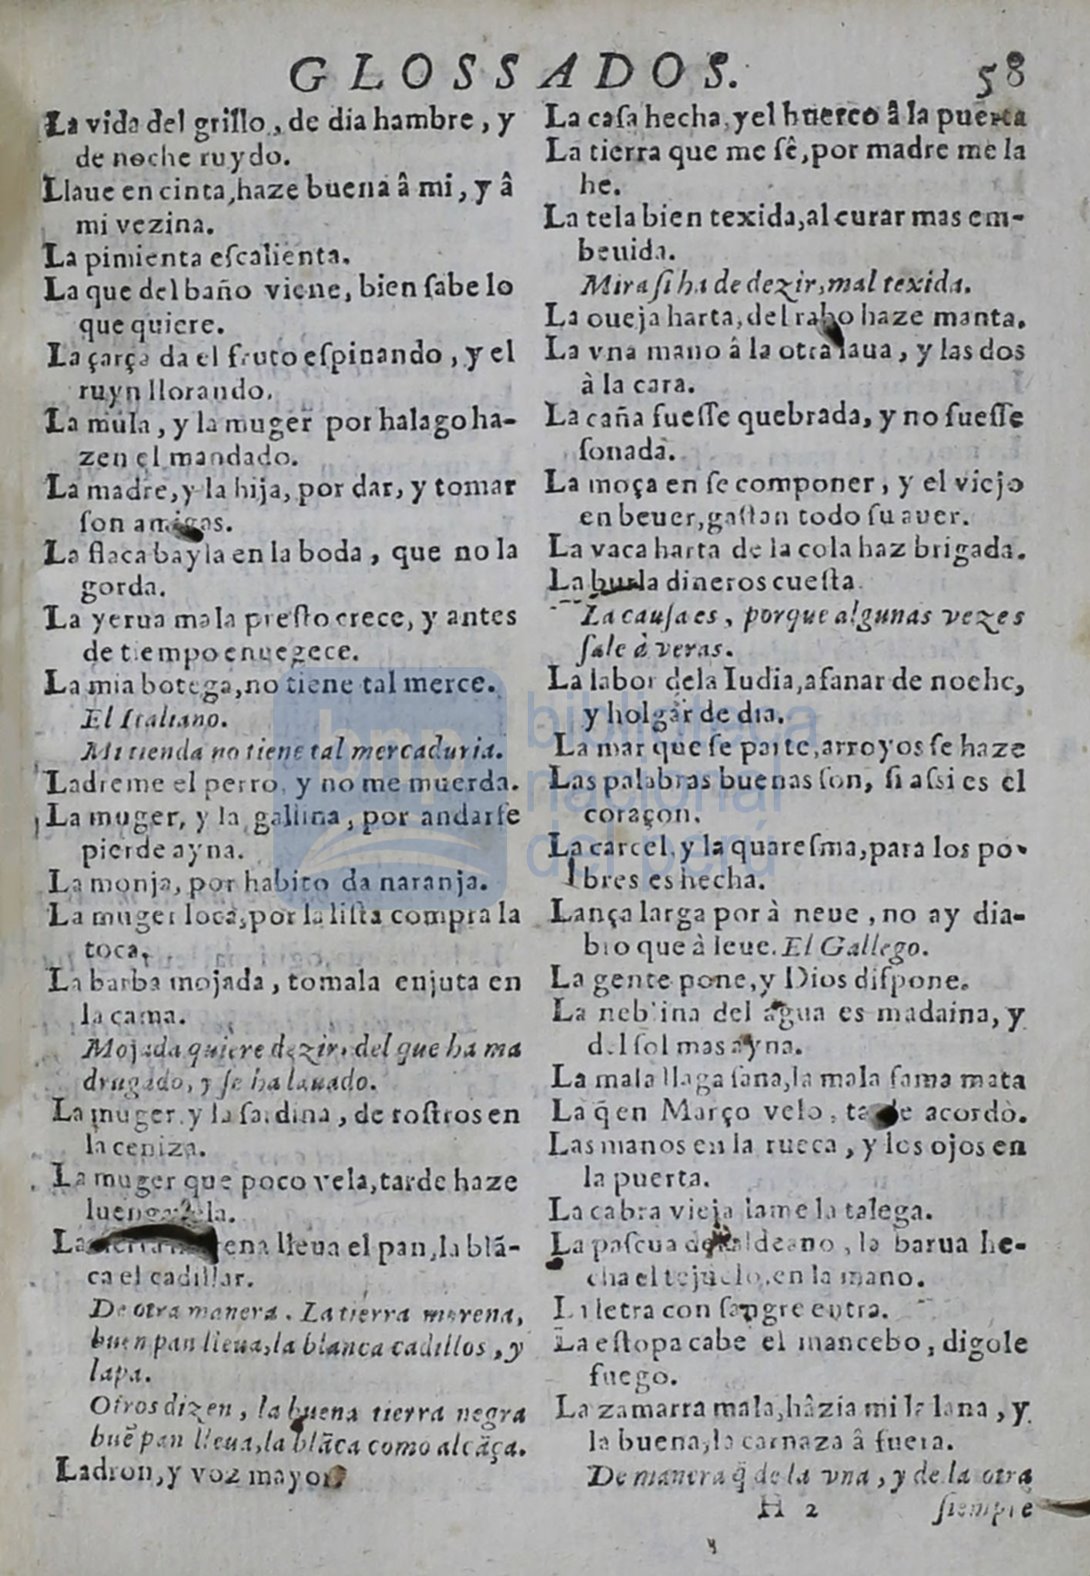 GLOSSADOS. 58
La vida del grillo, de dia hambre, y
de noche ruydo.
Llaue en cinta, haze buena â mi, y â
mi vezina.
La pimienta eſcalienta.
La que del baño viene, bien ſabe lo
que quiere.
La çarça da el fruto eſpinando, y el
ruyn llorando.
La mula, y la muger por halago ha-
zen el mandado.
La madre, y la hija, por dar, y tomar
ſon amigas.
La flaca bayla en la boda, que no la
gorda.
La yerua mala preſto crece, y antes
de tiempo enuegece.
La mia botega, no tiene tal merce.
El Italiano.
Mi tienda no tiene tal mercaduria.
Ladreme el perro, y no me muerda.
La muger, y la gallina, por andarſe
pierde ayna.
La monja, por habito da naranja.
La muger loca, por la liſta compra la
toca.
La barba mojada, tomala enjuta en
la cama.
Mojada quiere dezir, del que ha ma
drugado, y ſe ha lauado.
La muger y la ſardina, de roſtros en
la ceniza.
La muger que poco vela, tarde haze
luenga tela.
La lleua el pan, la blã-
ca el cadillar.
De otra manera. La tierra morena,
buen pan lleua, la blanca cadillos, y
lapa.
Otros dizen, la buena tierra negra
buẽ pan lleua, la blãca como alcãça.
Ladron, y voz mayor
La caſa hecha, y el huerco â la puerta
La tierra que me ſê, por madre me la
he.
La tela bien texida, al curar mas em-
beuida.
Mira ſi ha de dezir, mal texida.
La oueja harta, del rabo haze manta.
La vna mano â la otra laua, y las dos
à la cara.
La caña fueſſe quebrada, y no fueſſe
ſonada.
La moça en ſe componer, y el viejo
en beuer, gaſtan todo ſu auer.
La vaca harta de la cola haz brigada.
La burla dineros cueſta.
La cauſa es, porque algunas vezes
ſale à veras.
La labor dela Iudia, afanar de noche,
y holgar de dia.
La mar que ſe parte, arroyos ſe haze
Las palabras buenas ſon, ſi aſsi es el
coraçon.
La carcel, y la quareſma, para los po-
bres es hecha.
Lança larga por à neue, no ay dia-
bro que à leue. El Gallego.
La gente pone, y Dios diſpone.
La neblina del agua es madaina, y
del ſol mas ayna.
La mala llaga ſana, la mala fama mata
La q̃ en Março velo, tarde acordò.
Las manos en la rueca, y los ojos en
la puerta.
La cabra vieja lame la talega.
La paſcua del aldeano, la barua he-
cha el tejuelo, en la mano.
La letra con ſangre entra.
La eſtopa cabe el mancebo, digole
fuego.
La zamarra mala, hâzia mi la lana, y
la buena, la carnaza â fuera.
De manera q̃ de la vna, y de la otra
H 2 ſiempre
biblioteca
nacional
del perú
bnp